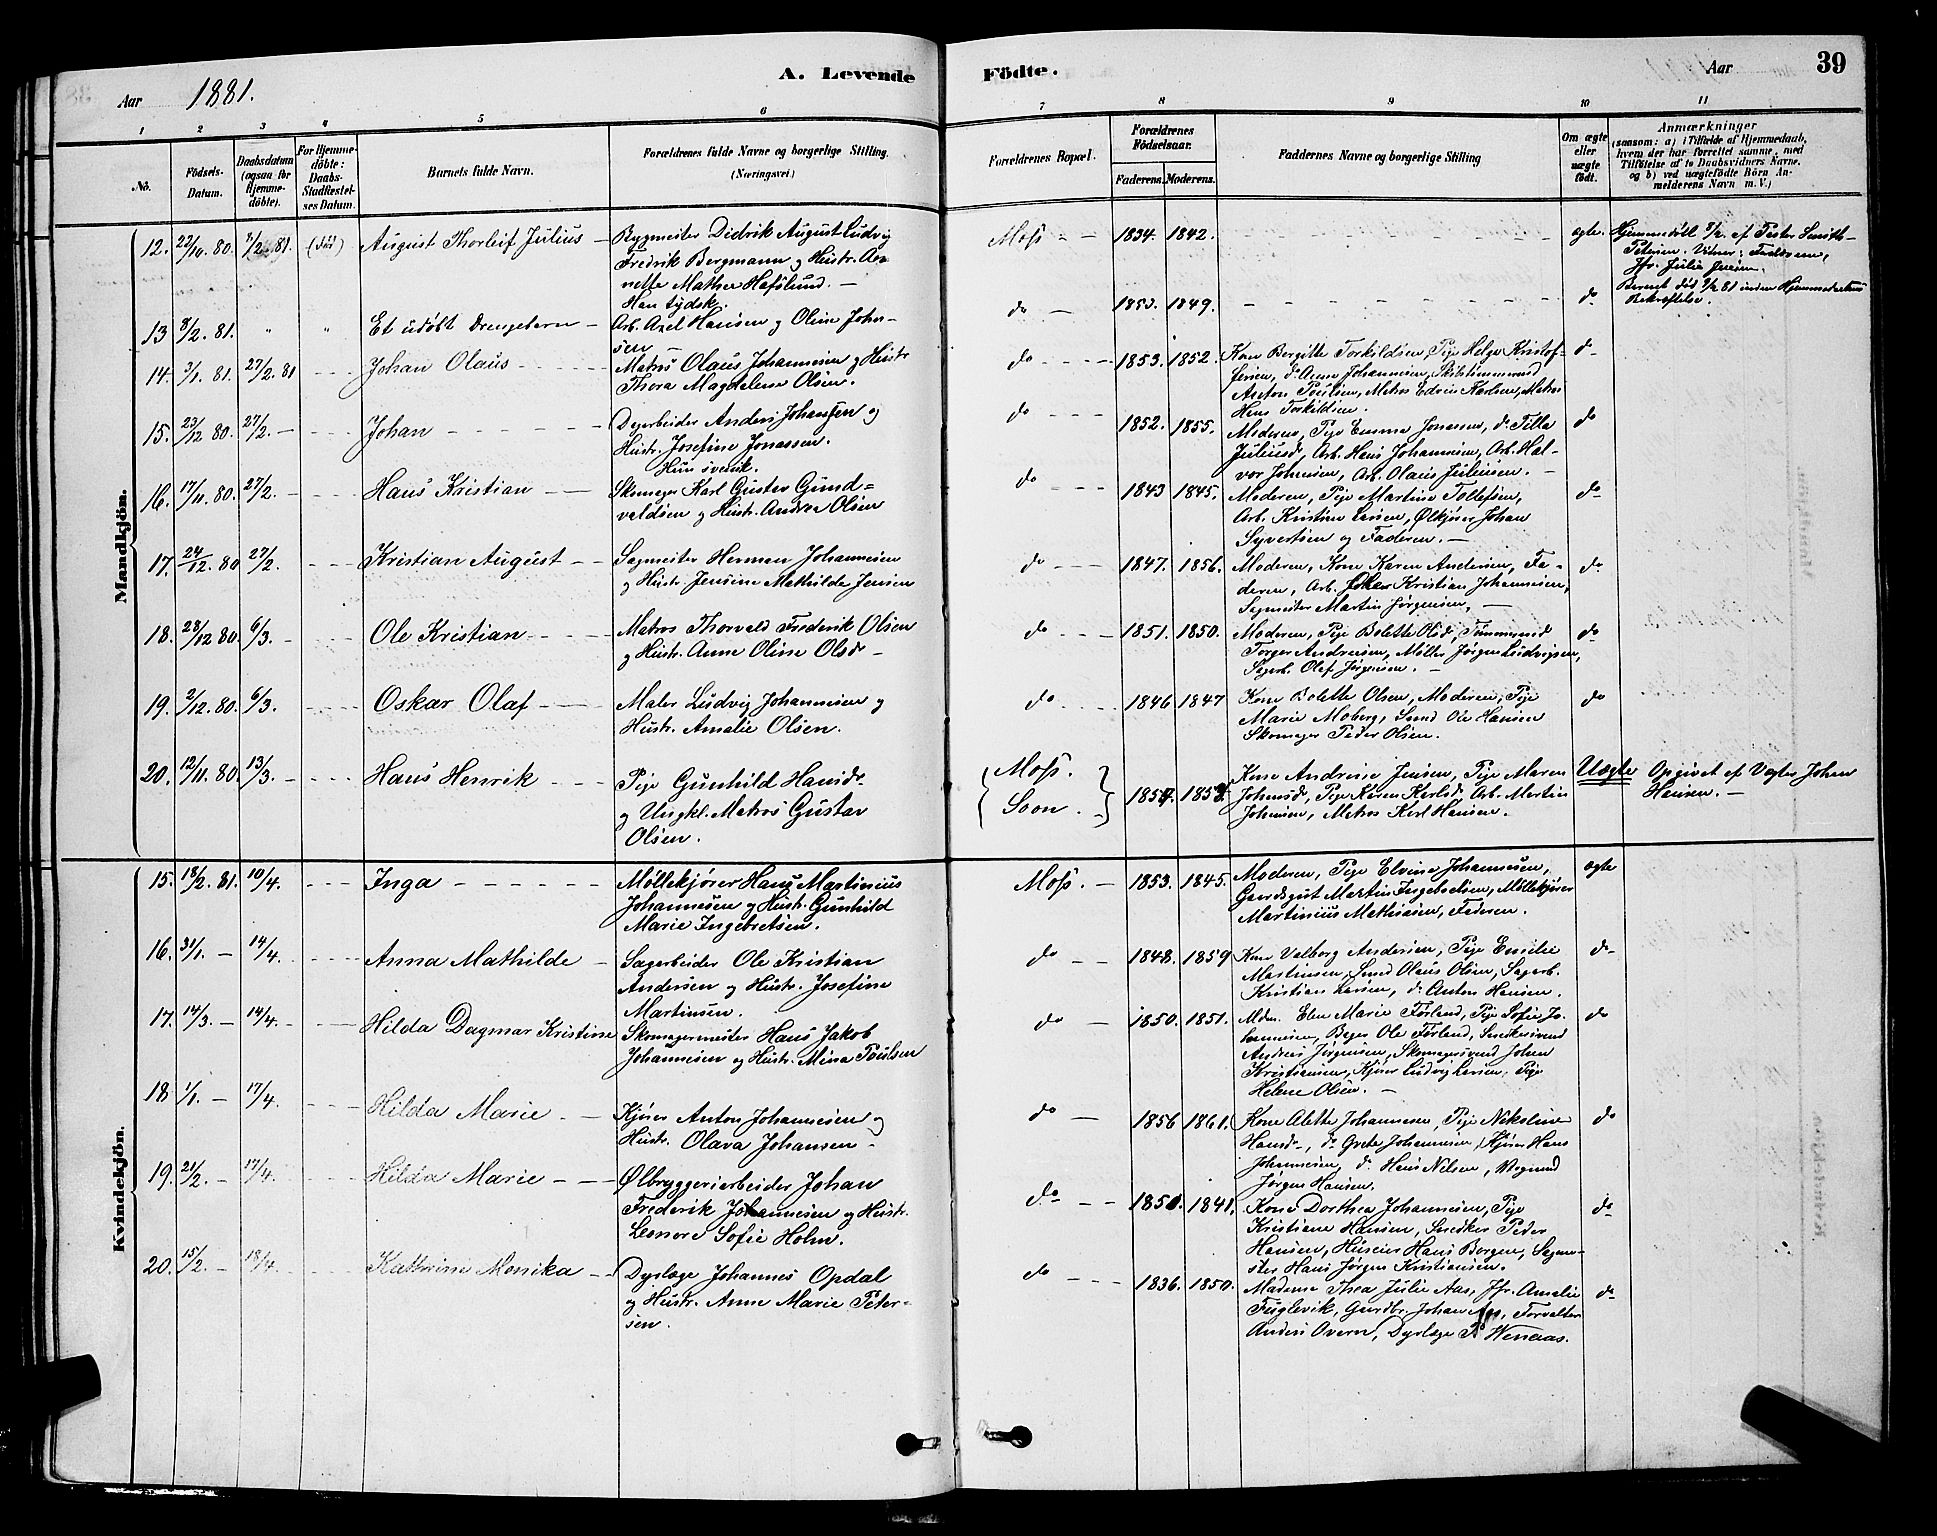 Aar 1881.
A. Levende
Födte.
Aar
39
1 2 3 4 5 6
7 8 9 10 11
No.
Födsels-
Datum.
Daabsdatum
(ogsaa for
Hjemme-
döbte).
For Hjemme-
döbte:
Daabs-
Stadfæstel-
ses Datum.
Barnets fulde Navn.
Forældrenes fulde Navne og borgerlige Stilling.
(Næringsvei)
Forældrenes Bopæl.
Forældrenes
Födselsaar.
Faderens. Moderens.
Faddernes Navne og borgerlige Stilling
Om ægte
eller
uægte
födt.
Anmærkninger
(saasom: a) i Tilfælde af Hjemmedaab,
hvem der har forrettet samme, med
Tilföielse af to Daabsvidners Navne.
og b) ved uægtefödte Börn An-
melderens Navn m. V.)
Mandkjön.
12. 22/10. 80. 7/2 81. (död) August Thorleif Julius
Bygmester Didrik August Ludvig
Fredrik Bergmann og Hustr. An-
nette Mathea Hafslund. —
Han tydsk.
Moss 1834. 1842. ægte.
Hjemmedöbt 7/2. af Pastor Smith-
Petersen. Vidner: Faderen,
Jfr. Julie Jensen.
Barnet död 7/2 81 inden Hjemmedaabens
Bekræftelse.
13 8/2. 81. " " Et udöbt Drengebarn
Arb. Axel Hansen og Oline John-
sen —
do 1853. 1849. do
14. 3/1. 81. 27/2. 81 Johan Olaus
Matros Olaus Johannesen og Hustr
Thora Magdalena Olsen.
do 1853. 1852.
Kone Bergitte Torkildsen, Pige Helga Kristof-
fersen, do Anna Johannesen, Skibstømmermand
Anton Poulsen, Matros Edvin Karlsen, Matros
Hans Torkildsen.
do
15. 23/12 80. 27/2. — Johan
Dagarbeider Anders Johansen og
Hustr. Josefine Jonassen.
Hun svensk.
do 1852. 1855.
Moderen, Pige Emma Jonassen, do Tilla
Juliusd., Arb. Hans Johannesen, Arb. Hal-
vor Johnsen, Arb. Olaus Juliusen. —
do
16. 17/11. 80. 27/2. — Hans Kristian
Skomager Karl Gustav Gund-
valdsen og Hustr. Andrea Olsen
do 1843 1845.
Moderen, Pige Martine Tollefsen,
Arb. Kristian Larsen, Ølkjører Johan
Syvertsen og Faderen. —
do
17. 24/12. 80 27/2. Kristian August
Sagmester Herman Johannesen
og Hustr. Jensine Mathilde Jensen
do 1847. 1856.
Moderen, Kone Karen Andersen, Fa-
deren, Arb. Johan Kristian Johannesen,
Sagmester Martin Jørgensen, —
do
18. 28/12 80. 6/3. — Ole Kristian
Matros Thorvald Frederik Olsen
og Hustr. Anne Oline Olsd. —
do 1851. 1850.
Moderen, Pige Bolette Olsd., Tømmermd
Torger Andreasen, Møller Jørgen Ludvigsen,
Sagarb. Olaf Jørgensen. —
do
19. 2/12. 80. 6/3. Oskar Olaf
Maler Ludvig Johannesen og
Hustr. Amalie Olsen.
do 1846 1847
Kone Bolette Olsen, Moderen, Pige
Marie Moberg, Smed Ole Hansen
Skomager Peder Olsen.
do
20. 12/11. 80. 13/3. — Hans Henrik
Pige Gunhild Hansd.
og Ungkl. Matros Gustav
Olsen.
Moss.
Soon.
Kone Andrine Jensen, Pige Maren
Johnsd., Pige Karen Karlsd., Arb. Martin
Johnsen, Matros Karl Hansen.
Uægte
Opgivet af Vægter Johan
Hansen. —
Kvindekjön.
15. 18/2. 81. 10/4. Inga
Möllekjører Hans Martinius
Johannesen og Hustr. Gunhild
Marie Ingebretsen.
Moss. — 1853. 1845.
Moderen, Pige Elvina Johannesen,
Gaardsgut Martin Ingebretsen, Möllekjører
Martinius Mathisen, Faderen.
ægte
16. 31/1. — 14/4. Anna Mathilde
Sagarbeider Ole Kristian
Andersen og Hustr. Josefine
Martinsen.
do 1848. 1859
Kone Valborg Andersen, Pige Emilie
Martinsen, Smed Olaus Olsen, Sagarb.
Kristian Larsen, do Anton Hansen.
do
17. 14/3. — 14/4. Hilda Dagmar Kristine
Skomagermester Hans Jakob
Johannesen og Hustr. Mina Poulsen
do 1850. 1851.
Mdm. Elen Marie Førland, Pige Sofie Jo-
hannesen, Bager Ole Førland, Snedkersvend
Andreas Jørgensen, Skomagersvend Johan
Kristiansen, Kjører Ludvig Larsen, Pige
Helene Olsen. —
do
18 1/1. — 17/4. Hilda Marie
Kjører Anton Johannesen og
Hustr. Olava Johansen —
do 1856 1861.
Kone Alette Johannesen, Pige Nikoline
Hansd., do Grete Johannesen, Kjører Hans
Johannesen, do Hans Nelsen, Vognmd
Jørgen Hansen.
do
19. 21/2. — 17/4. Hilda Marie
Ølbryggeriarbeider Johan
Frederik Johannesen og Hustr.
Leonore Sofie Holm.
do 1850. 1841.
Kone Dorthea Johannesen, Pige
Kristiane Hansen, Snedker Peder
Hansen, Huseier Hans Borgen, Sagme-
ster Hans Jørgen Kristiansen.
do
20. 15/2. — 18/4. Kathrine Monika
Dyrlæge Johannes Opdal
og Hustr. Anne Marie Peter-
sen.
do 1836. 1850.
Madame Thea Julie Aas, Jfr. Amalie
Fuglevik, Gaardbr. Johan Aas, Forvalter
Anders Overn, Dyrlæge Wenaas.
do